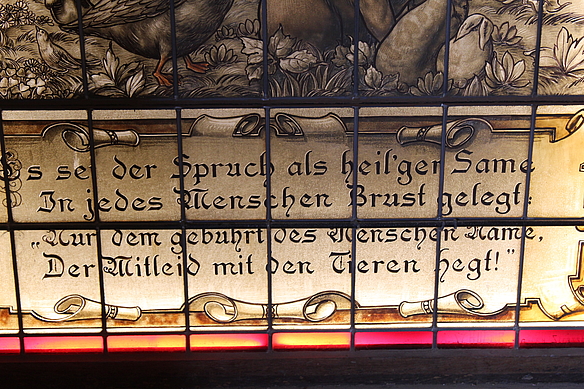 Es sei der Spruch als heil'ger Same
In jedes Menschen Brust gelegt:
„Nur dem gebührt des Menschen Name,
Der Mitleid mit den Tieren hegt!"